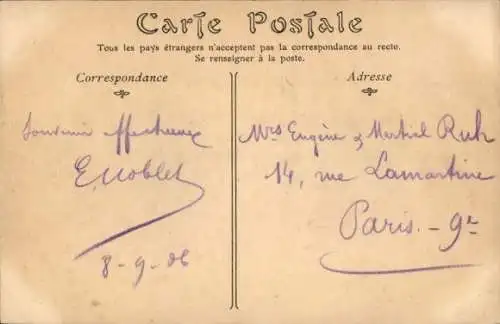 Carte Postale
Tous les pays étrangers n'acceptent pas la correspondance au recto.
Se renseigner à la poste.
Correspondance
Souvenir affectueux
E. Noblet
8-9-06
Adresse
Mrs Eugène & Martial Ruh
14, rue Lamartine
Paris - 9e